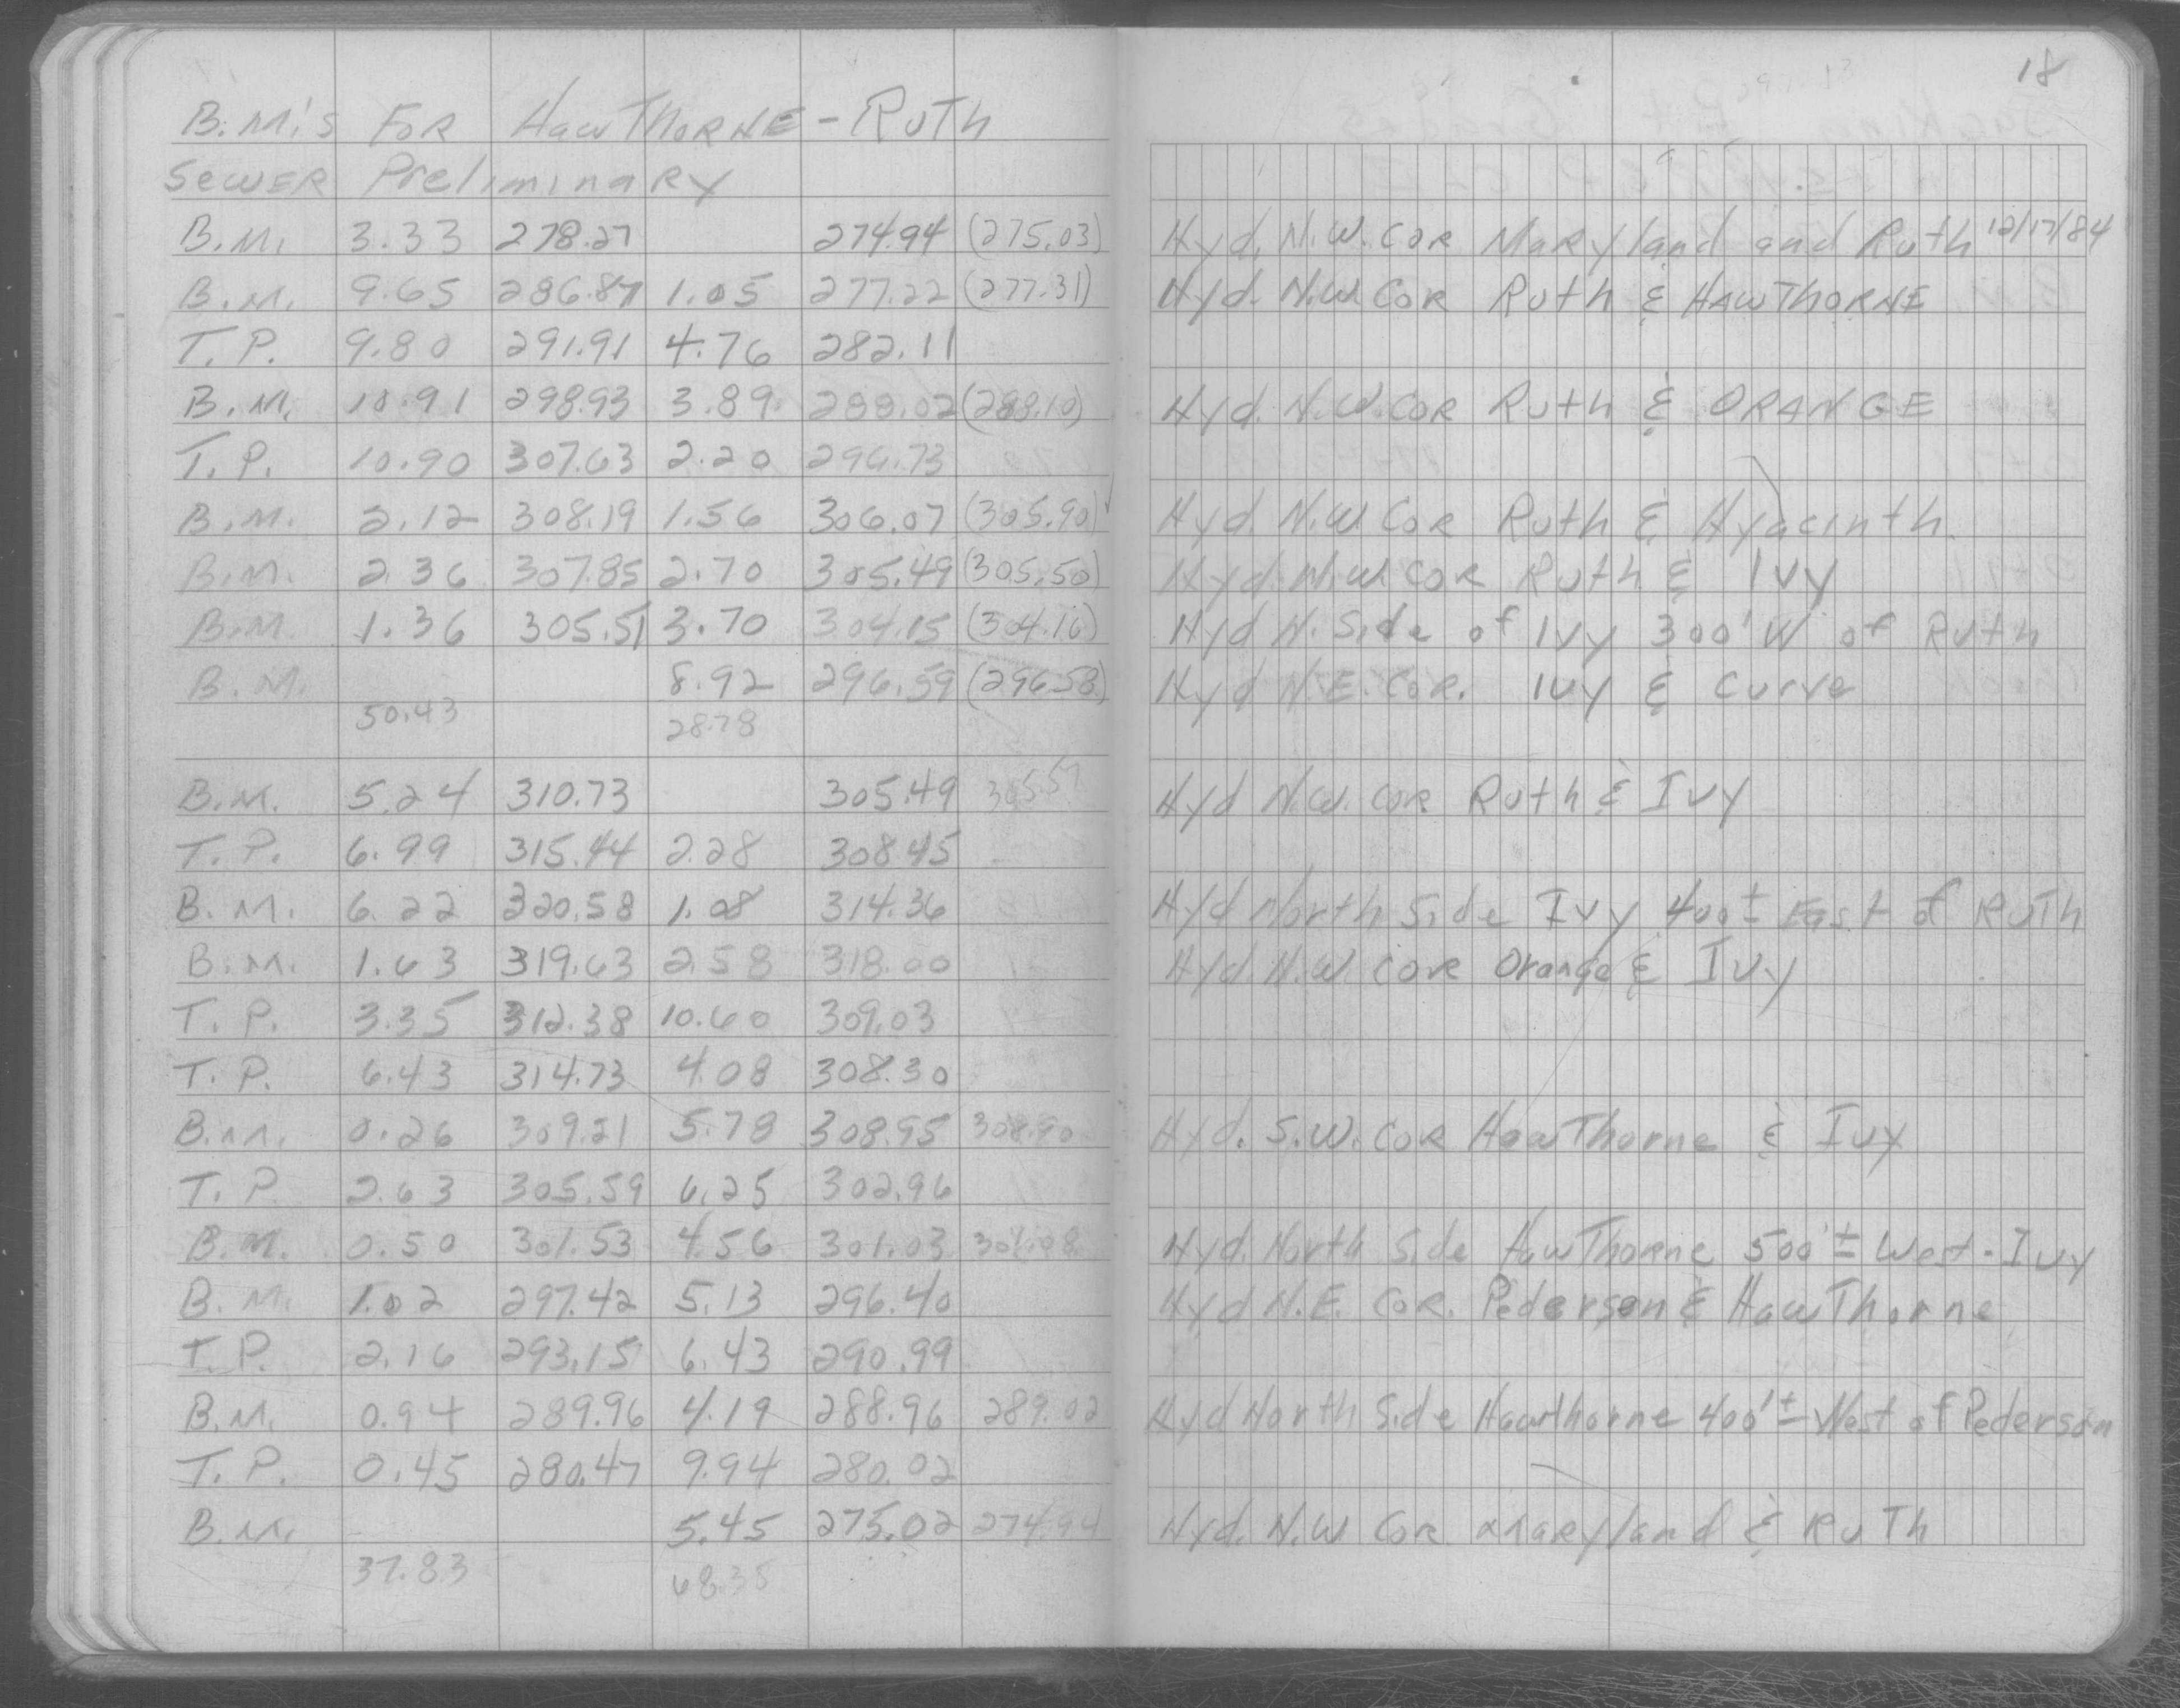 18
B.M.'s FOR HAWTHORNE - RUTH
SEWER Preliminary
B.M. 3.33 278.27 274.94 (275.03) Hyd. N.W. COR Maryland and Ruth 12/17/84
B.M. 9.65 286.87 1.05 277.22 (277.31) Hyd. N.W. COR Ruth & HAWTHORNE
T.P. 9.80 291.91 4.76 282.11
B.M. 10.91 298.93 3.89 288.02 (288.10) Hyd. N.W. COR Ruth & ORANGE
T.P. 10.90 307.63 2.20 296.73
B.M. 2.12 308.19 1.56 306.07 (305.90) ✓ Hyd. N.W. COR Ruth & Hyacinth.
B.M. 2.36 307.85 2.70 305.49 (305.50) Hyd. N.W. COR Ruth & Ivy
B.M. 1.36 305.51 3.70 304.15 (304.16) Hyd N. Side of Ivy 300' W of Ruth
B.M. 8.92 296.59 (296.58) Hyd N.E. COR. Ivy & Curve
50.43 28.78
B.M. 5.24 310.73 305.49 305.57 Hyd N.W. COR Ruth & Ivy
T.P. 6.99 315.44 2.28 308.45
B.M. 6.22 320.58 1.08 314.36 Hyd North Side Ivy 400± East of RUTH
B.M. 1.63 319.63 2.58 318.00 Hyd. N.W. COR Orange & Ivy
T.P. 3.35 312.38 10.60 309.03
T.P. 6.43 314.73 4.08 308.30
B.M. 0.26 309.21 5.78 308.95 308.90 Hyd. S.W. COR HawThorne & Ivy
T.P. 2.63 305.59 6.25 302.96
B.M. 0.50 301.53 4.56 301.03 301.08 Hyd. North Side HawThorne 500'± West - Ivy
B.M. 1.02 297.42 5.13 296.40 Hyd N.E. COR. Pederson & HawThorne
T.P. 2.16 293.15 6.43 290.99
B.M. 0.94 289.96 4.19 288.96 289.02 Hyd North Side Hawthorne 400'± West of Pederson
T.P. 0.45 280.47 9.94 280.02
B.M. 5.45 275.02 274.94 Hyd. N.W COR Maryland & RUTH
37.83 68.35